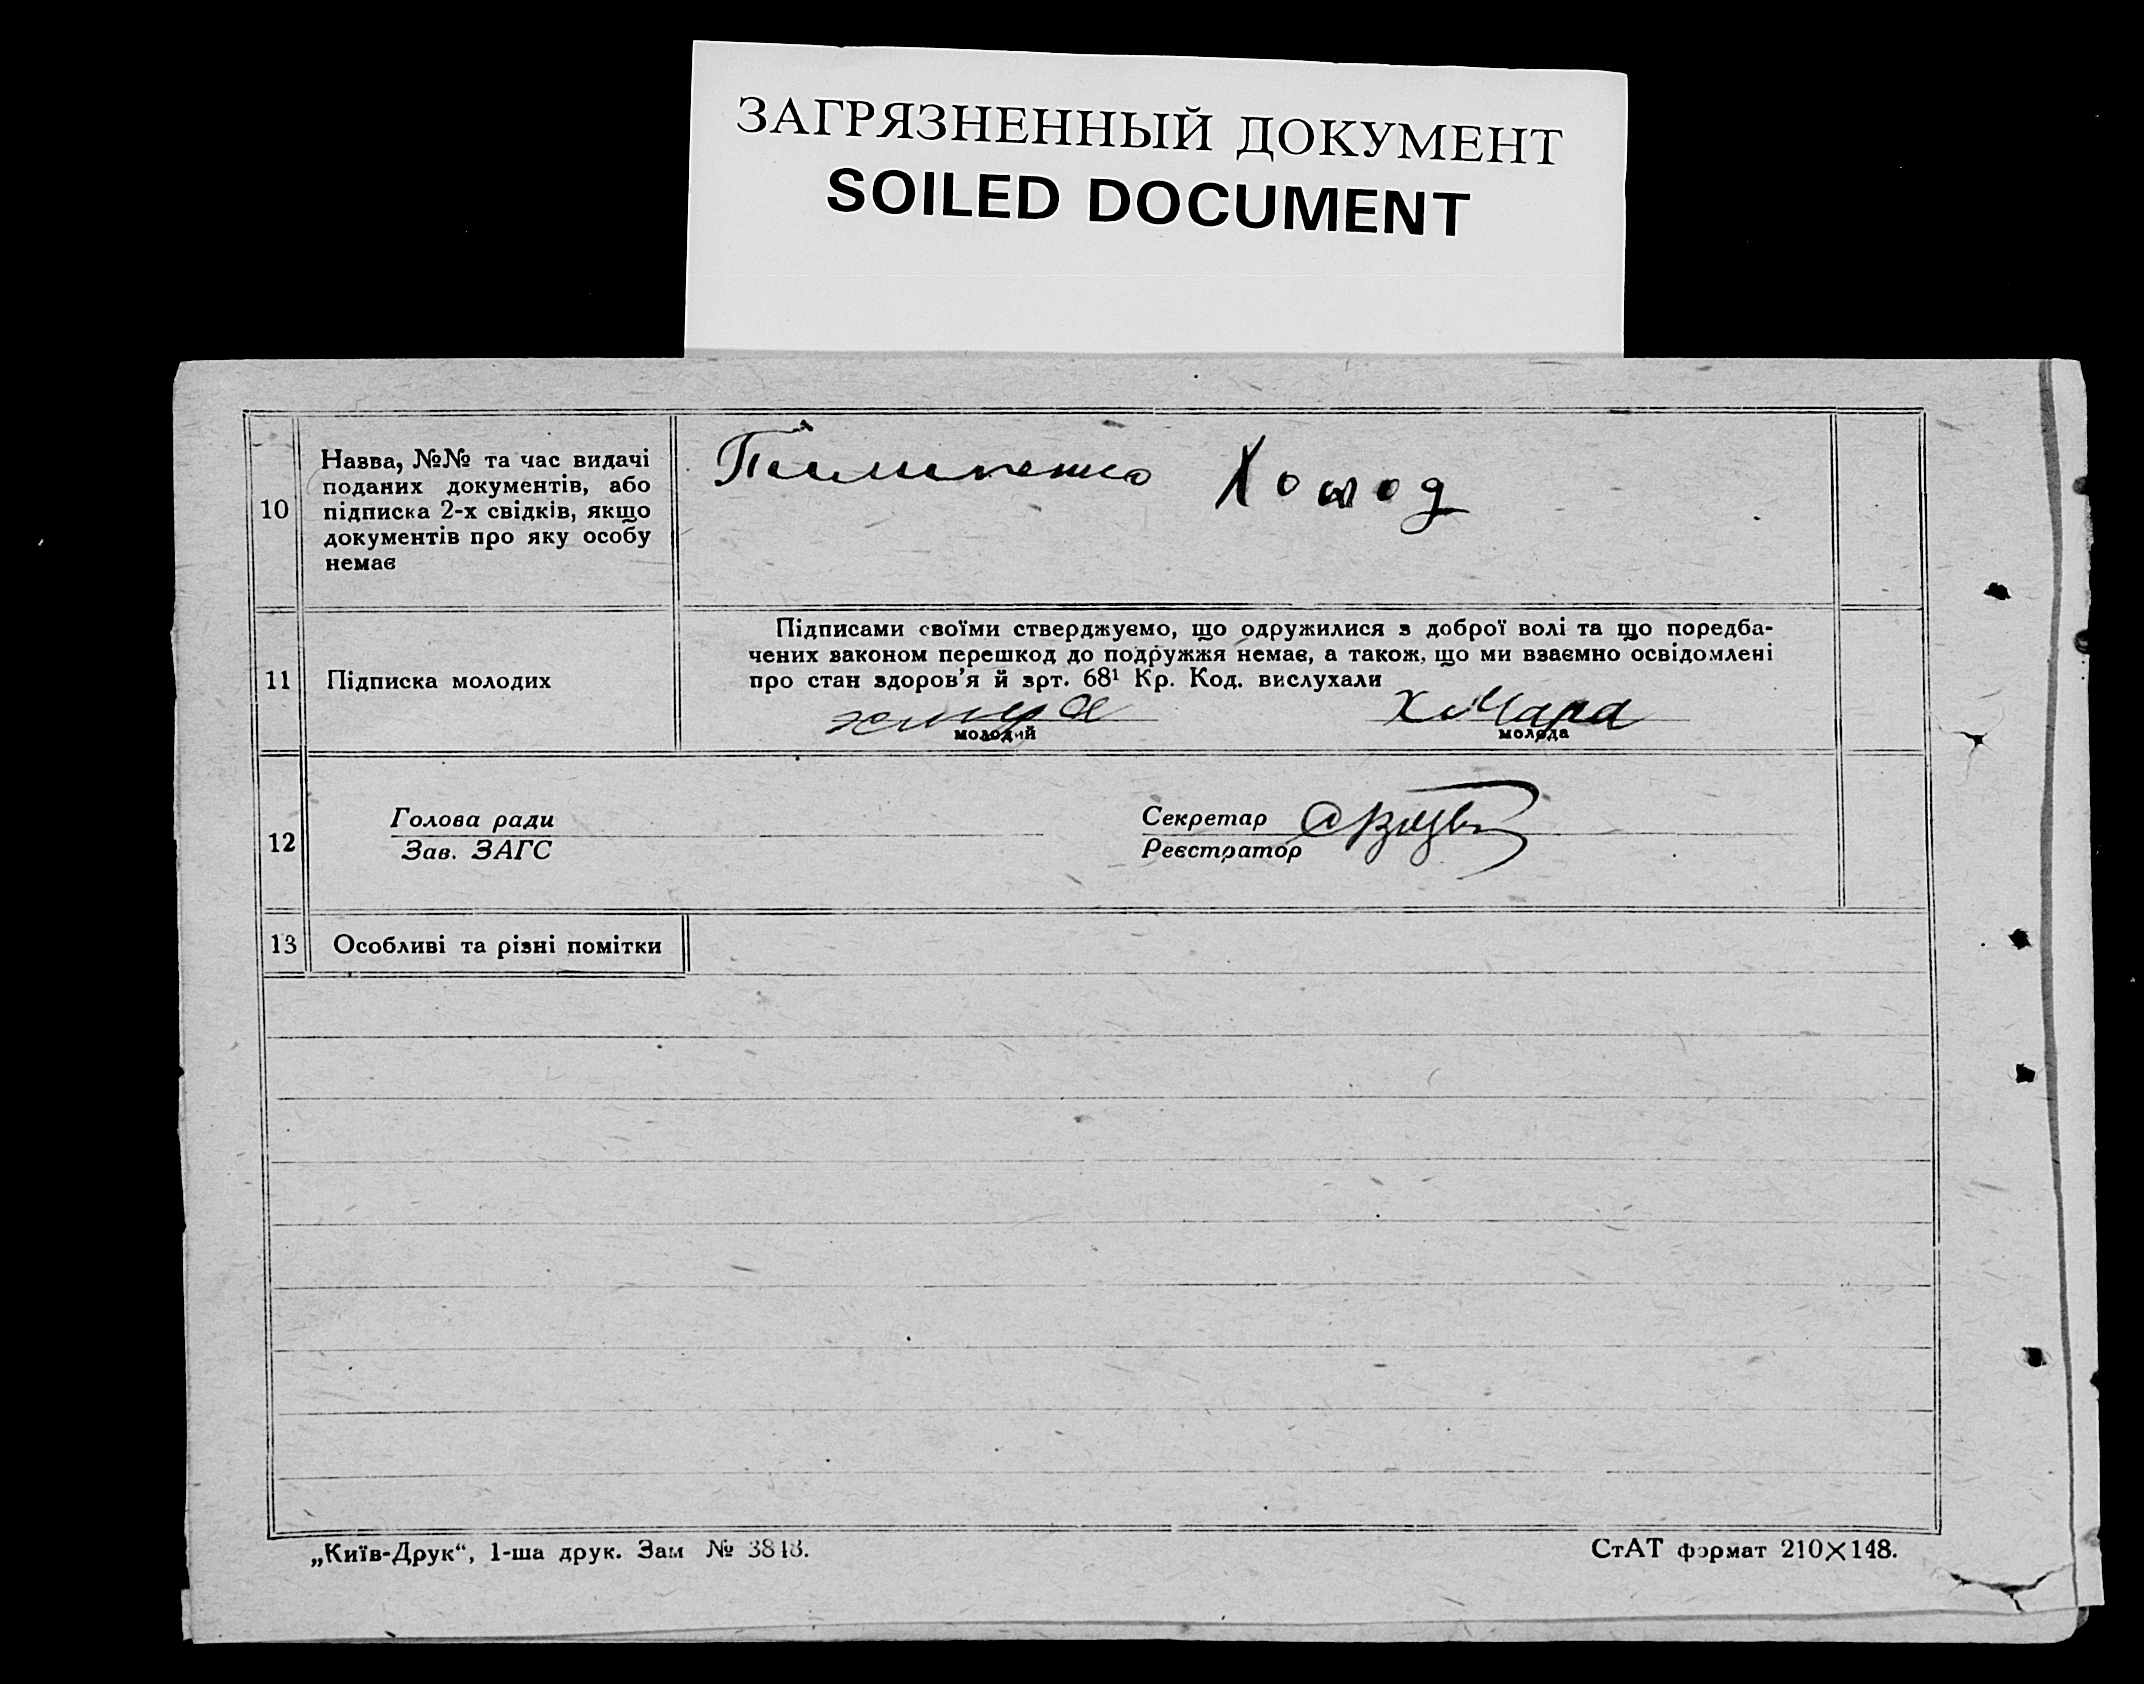 ЗАГРЯЗНЕННЫЙ ДОКУМЕНТ
SOILED DOCUMENT
10
Назва, №№ та час видачі
поданих документів, або
підписка 2-х свідків, якщо
документів про яку особу
немає
Холод
11
Підписка молодих
Підписами своїми стверджуємо, що одружилися з доброї волі та що поредба-
чених законом перешкод до подружжя немає, а також, що ми взаємно освідомлені
про стан здоров'я й зрт. 68¹ Кр. Код. вислухали
Хмара
молодий
молода
12
Голова ради
Зав. ЗАГС
Секретар
Реєстратор
13
Особливі та різні помітки
„Київ-Друк“, 1-ша друк. Зам № 3813.
СтАТ формат 210×148.